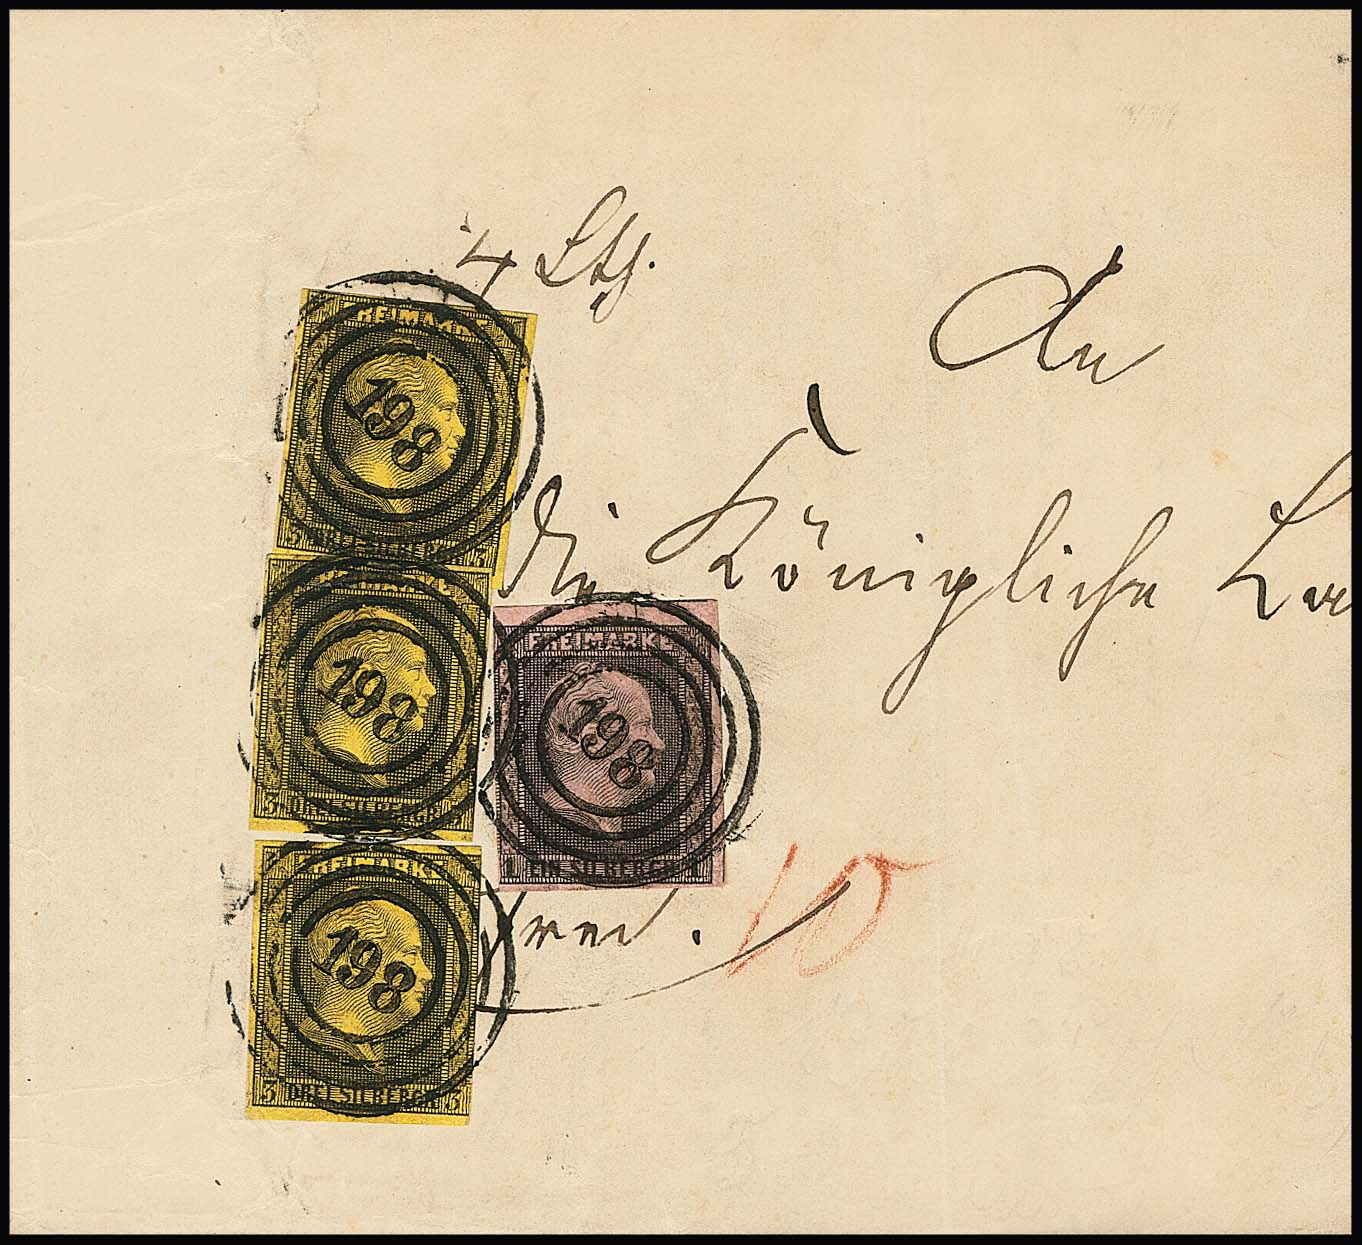 4 Lth.
An
die Königliche
FREIMARKE
198
3 DREI SILBERGR. 3
FREIMARKE
198
3 DREI SILBERGR. 3
FREIMARKE
198
1 EIN SILBERGR. 1
FREIMARKE
198
3 DREI SILBERGR. 3
frei.
10